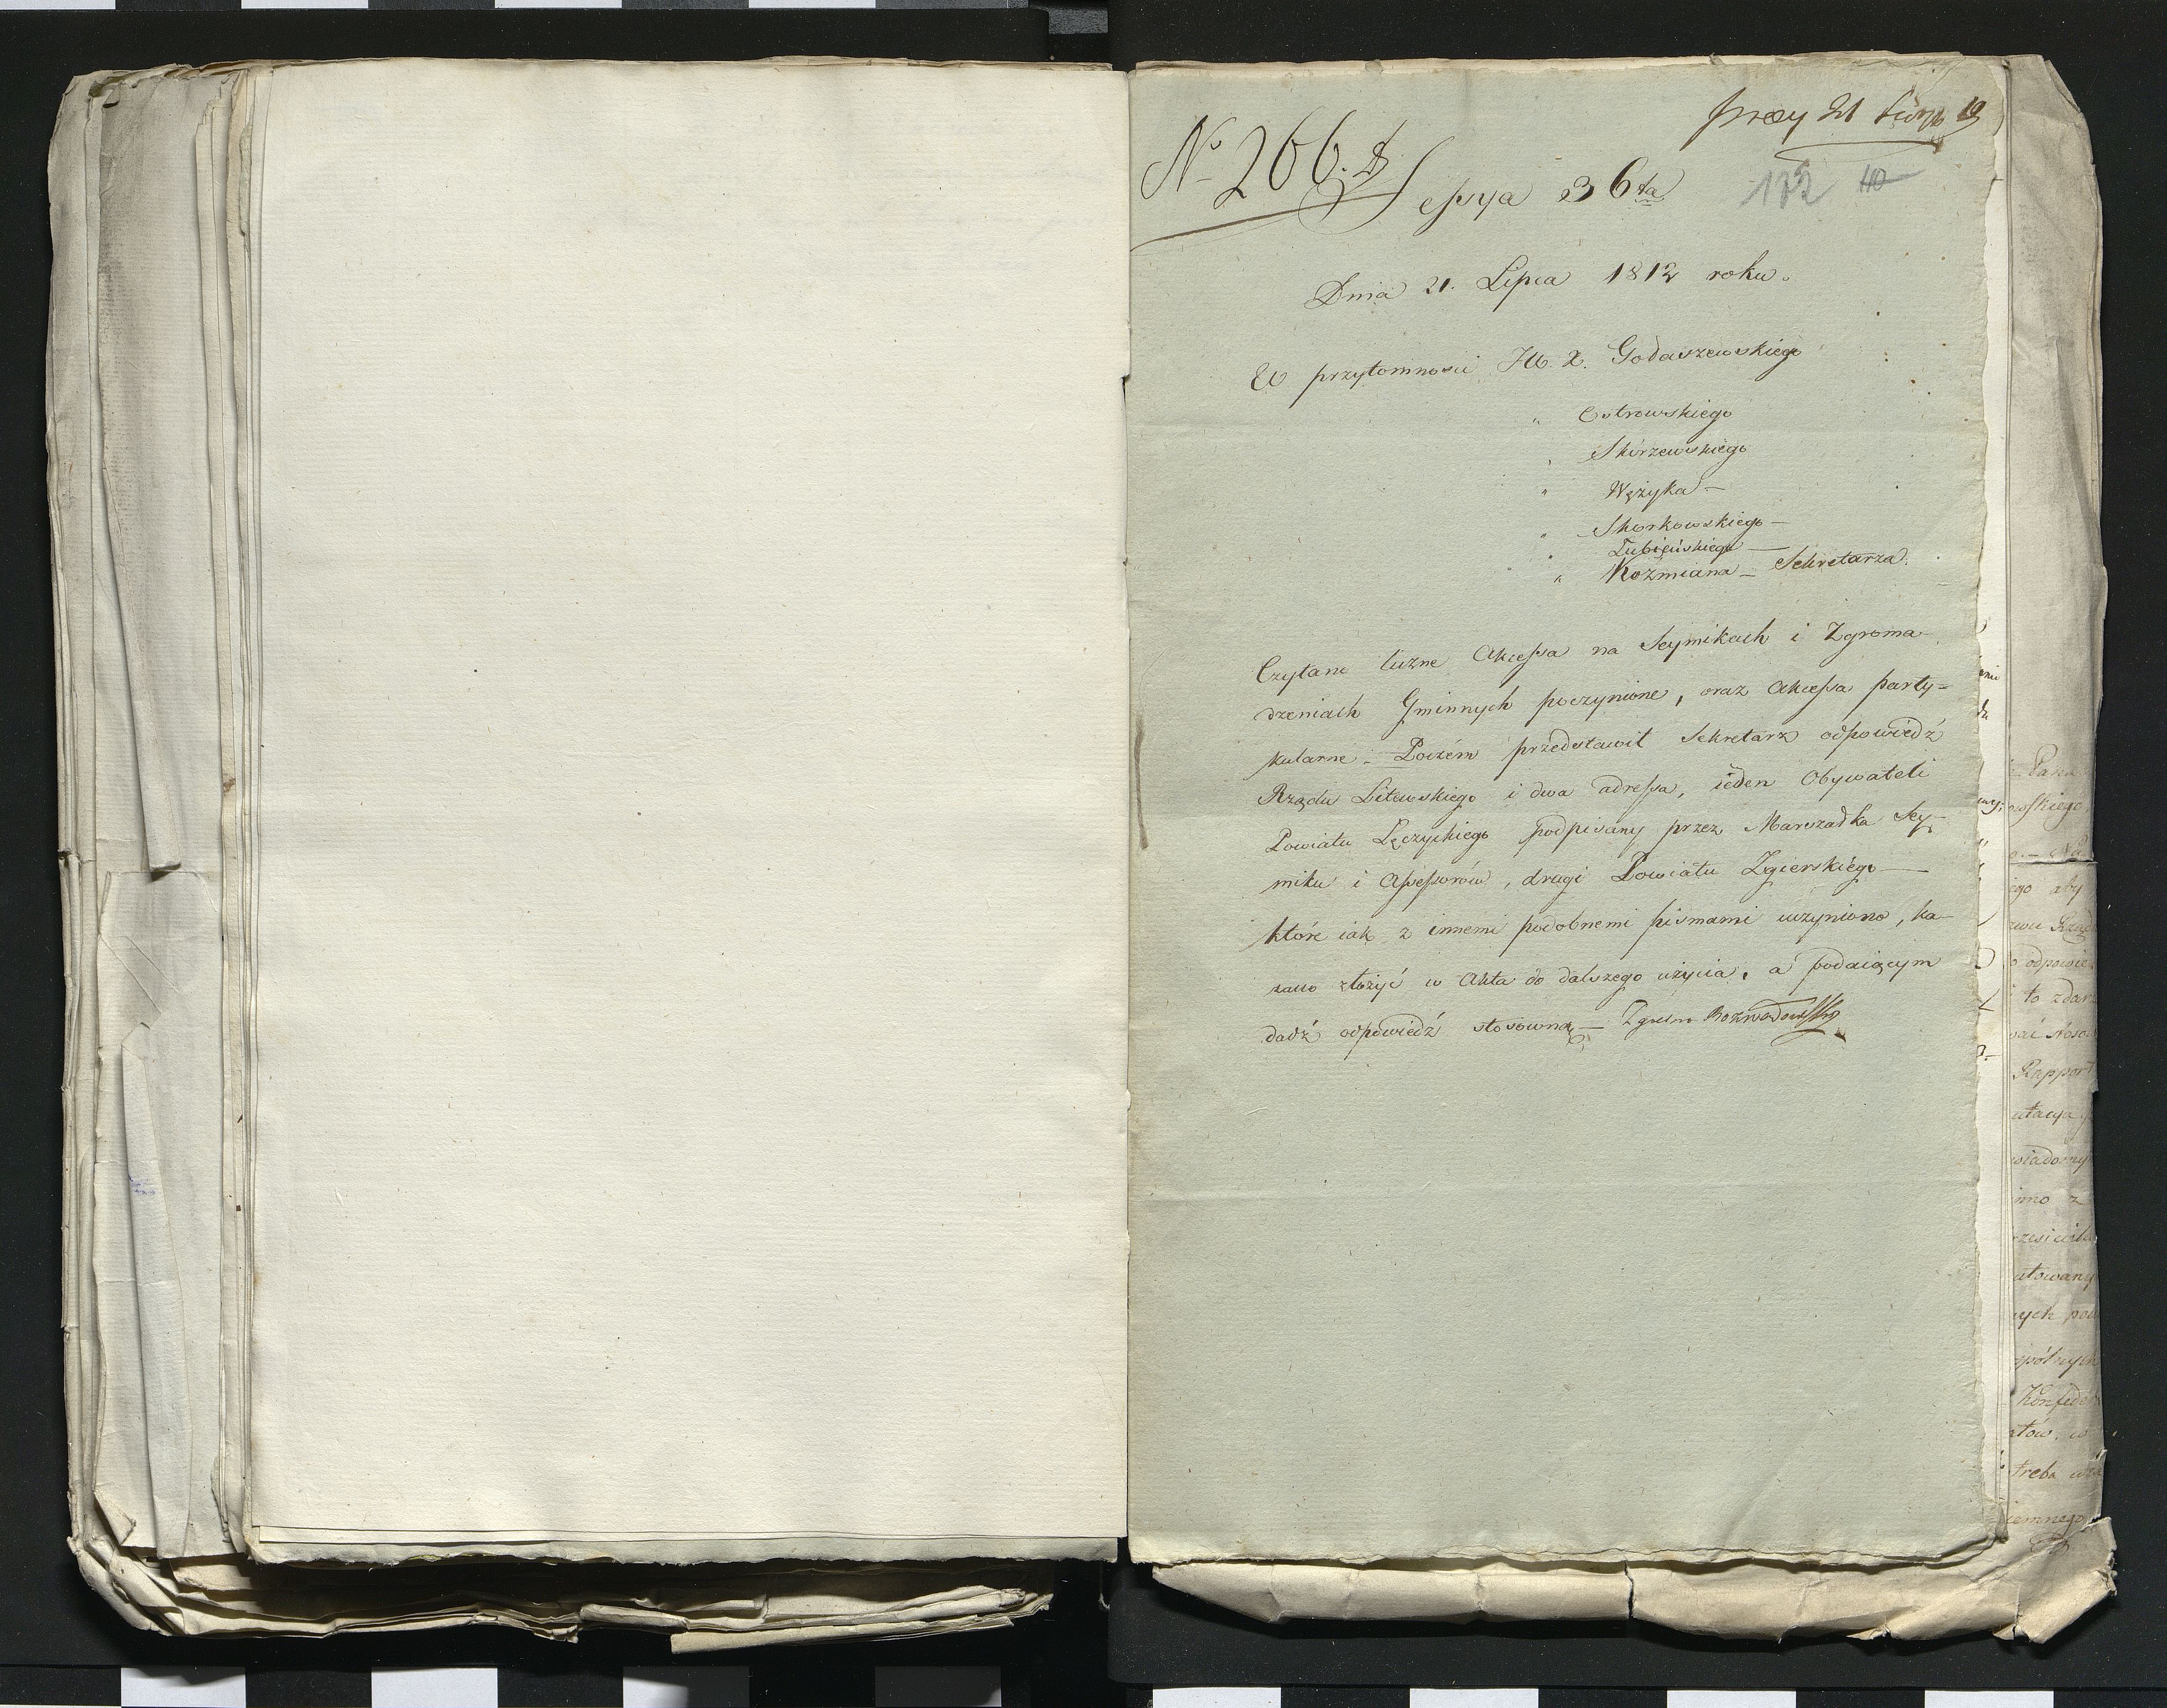 No 266. D
Sessya 36ta
132 40
Dnia 21. Lipca 1812 roku.
W przytomności JW. X. Godaszewskiego
" Ostrowskiego
" Skórzewskiego
" Wężyka –
" Skorkowskiego –
" Łubieńskiego –
" Koźmiana – Sekretarza.
Czytane liczne Akcessa na Seymikach i Zgroma-
dzeniach Gminnych poczynione, oraz Akcessa party=
kularne. – Poczém przedstawił Sekretarz odpowiedź
Rządu Litewskiego i dwa adressa, ieden Obywateli
Powiatu Łęczyckiego podpisany przez Marszałka Sey-
miku i Assessorów, drugi Powiatu Zgierskiego –
które iak z innemi podobnemi pismami uczyniono, ka-
zano złożyć w Akta do dalszego użycia, a podaiącym
dadź odpowiedź stosowną –